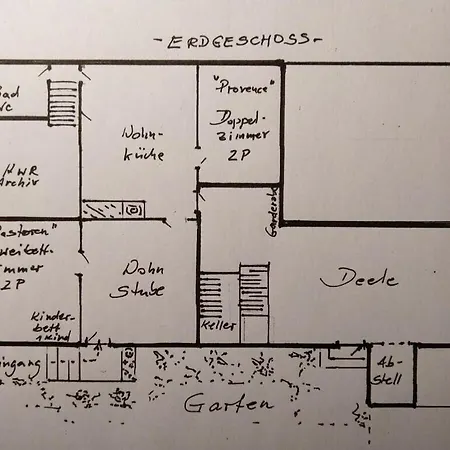 - ERDGESCHOSS -
Bad
WC
Wohn-
küche
"Provence"
Doppel-
zimmer
2P
HWR
Archiv
Garderobe
"Pastoren"
zweibett-
zimmer
2P
Wohn
Stube
Deele
Kinder-
bett
1 Kind
Keller
Eingang
Ab-
stell
Garten